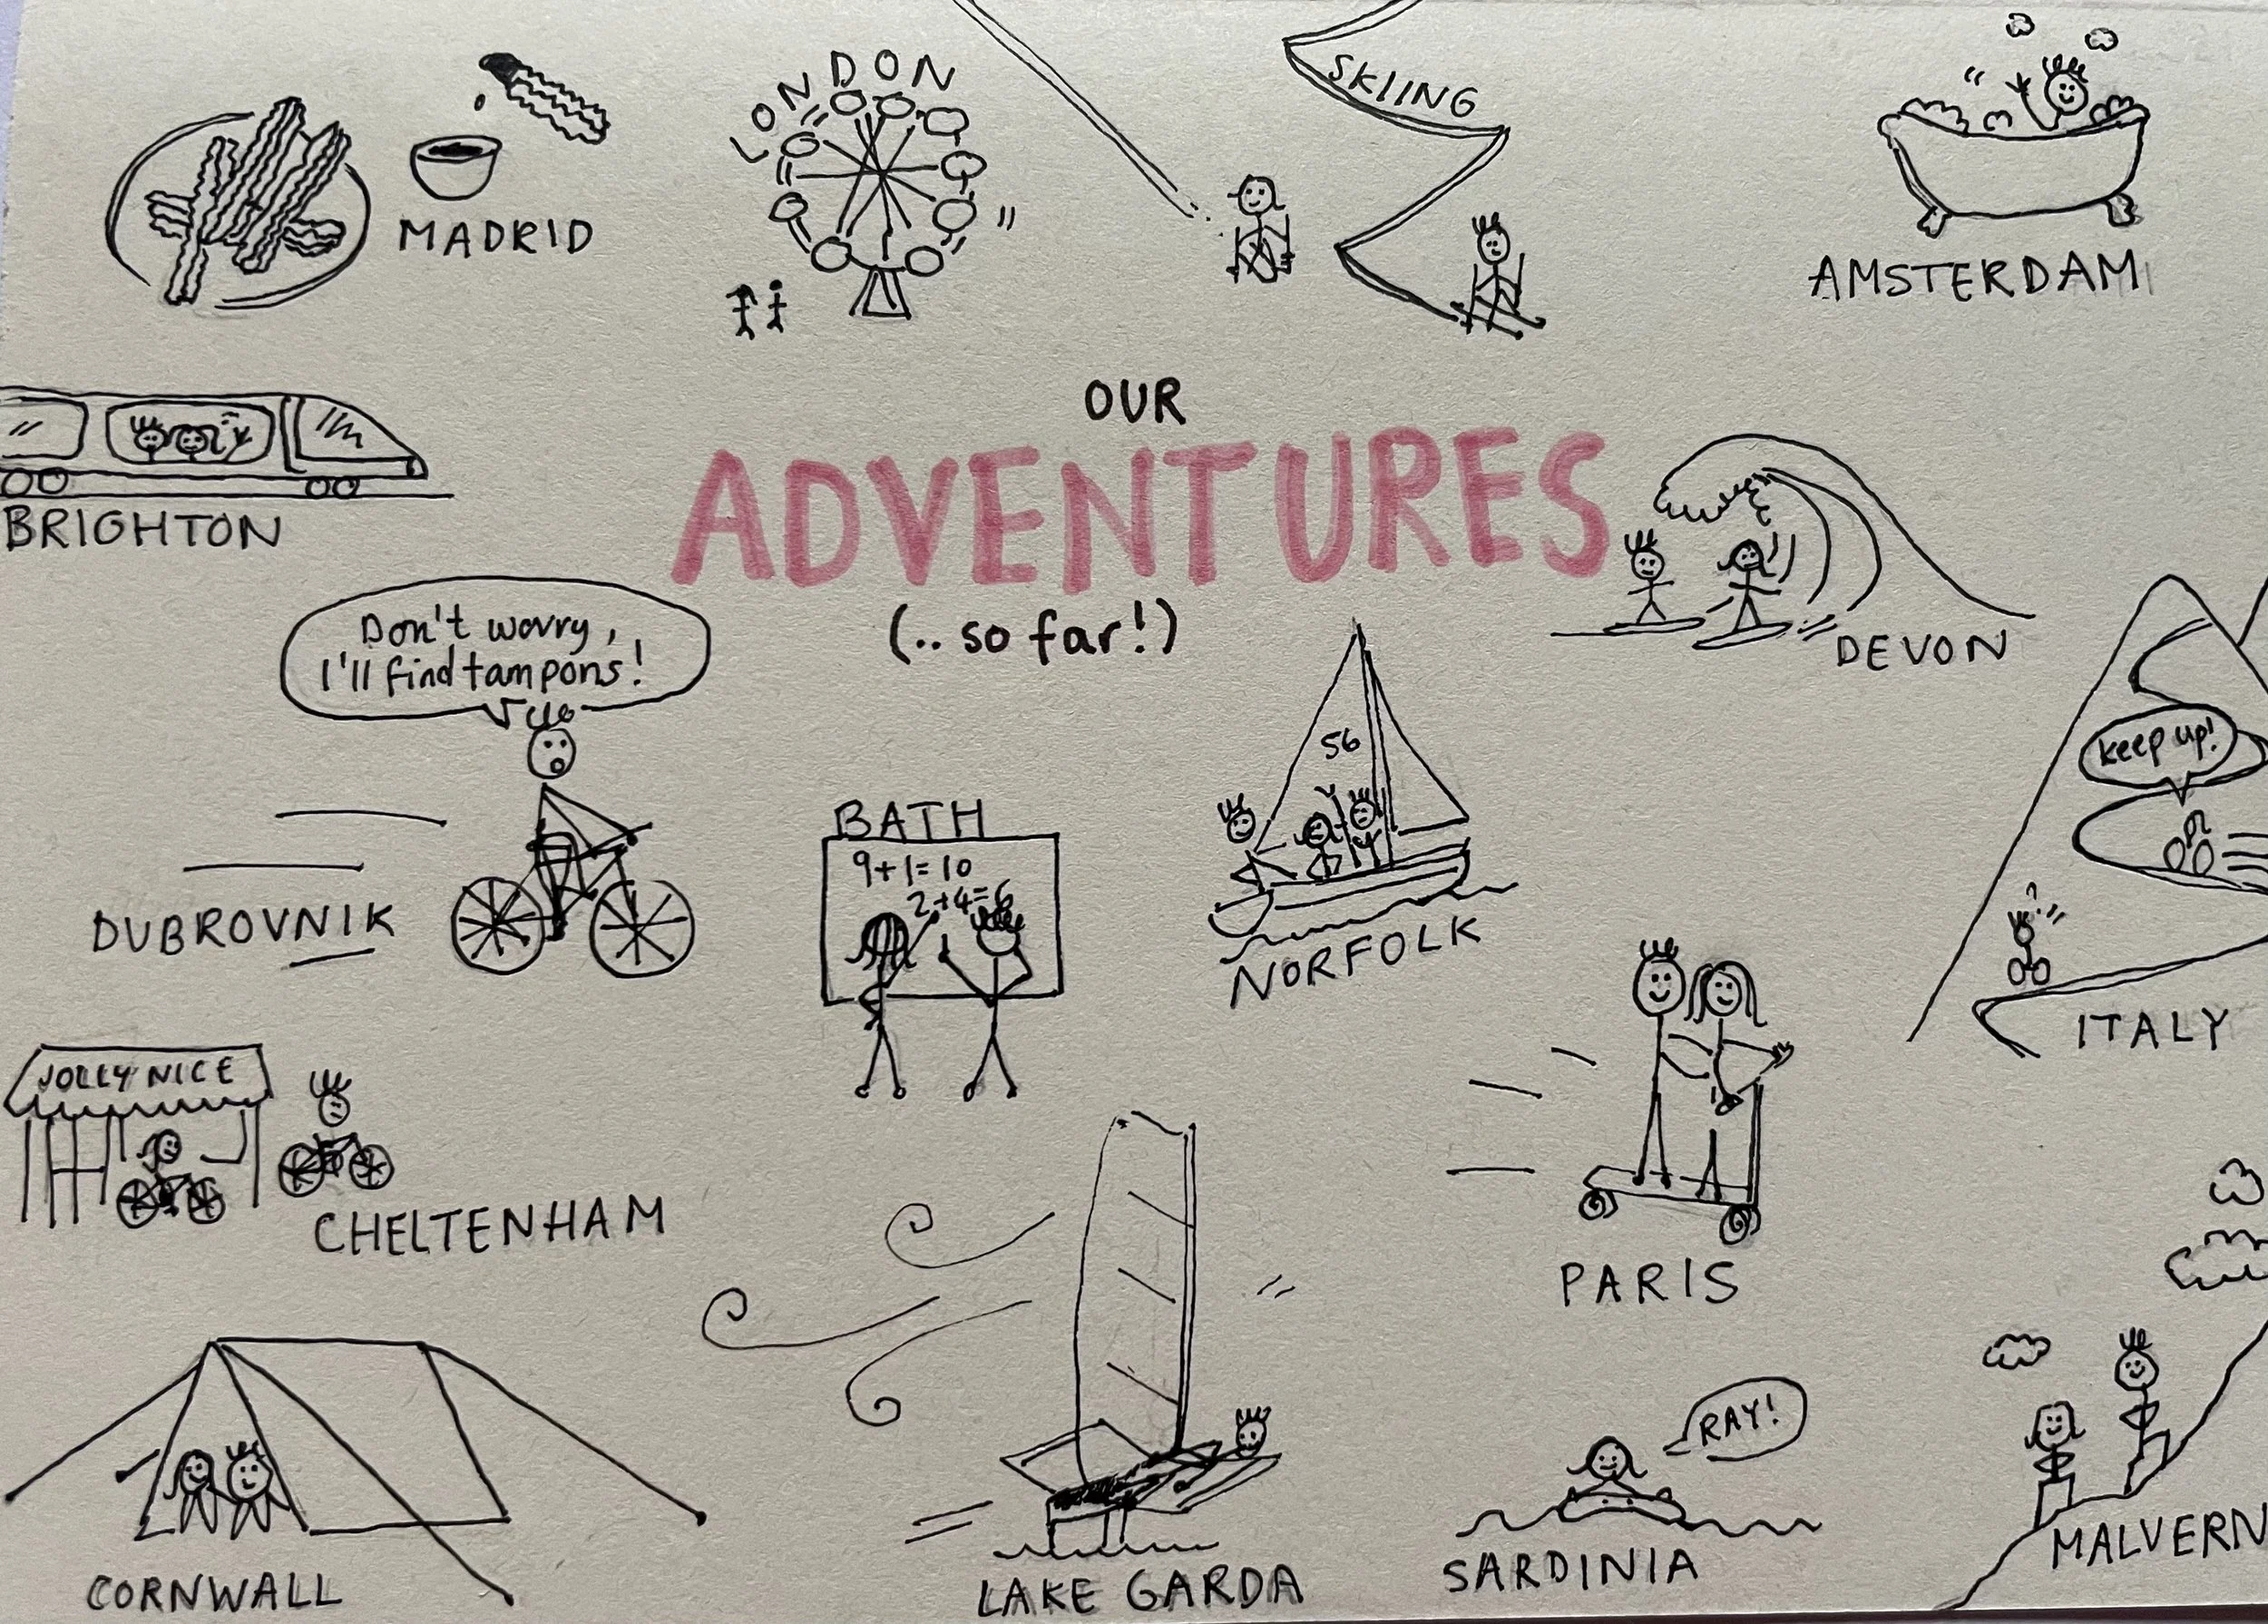 MADRID
LONDON
SKIING
AMSTERDAM
BRIGHTON
OUR
ADVENTURES
(.. so far!)
DEVON
Don't worry,
I'll find tampons!
DUBROVNIK
BATH
9+1=10
2+4=6
56
NORFOLK
keep up!
ITALY
JOLLY NICE
CHELTENHAM
PARIS
CORNWALL
LAKE GARDA
RAY!
SARDINIA
MALVERN